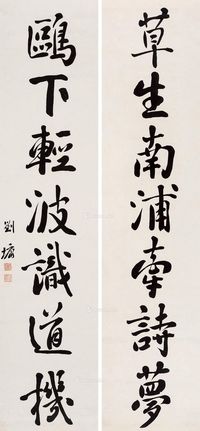 草生南浦牵詩夢
鷗下輕波識道機
劉墉